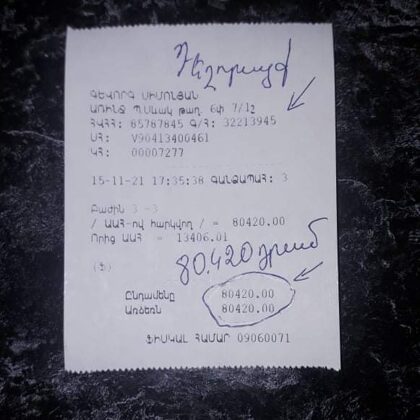 ԳԵՎՈՐԳ ՍԻՄՈՆՅԱՆ
ԱՌԻՆՋ Պ.Սևակ թաղ. 6փ 7/1շ
ՀՎՀՀ: 85787845 Գ/Հ: 32213945
ՍՀ: V90413400461
ԿՀ: 00007277
15-11-21 17:35:38 ԳԱՆՁԱՊԱՀ: 3
Բաժին 3 -3
/ ԱԱՀ-ով հարկվող / = 80420.00
Որից ԱԱՀ = 13406.01
80.420 դրամ
(Ֆ)
Ընդամենը 80420.00
Առձեռն 80420.00
ՖԻՍԿԱԼ ՀԱՄԱՐ 09060071